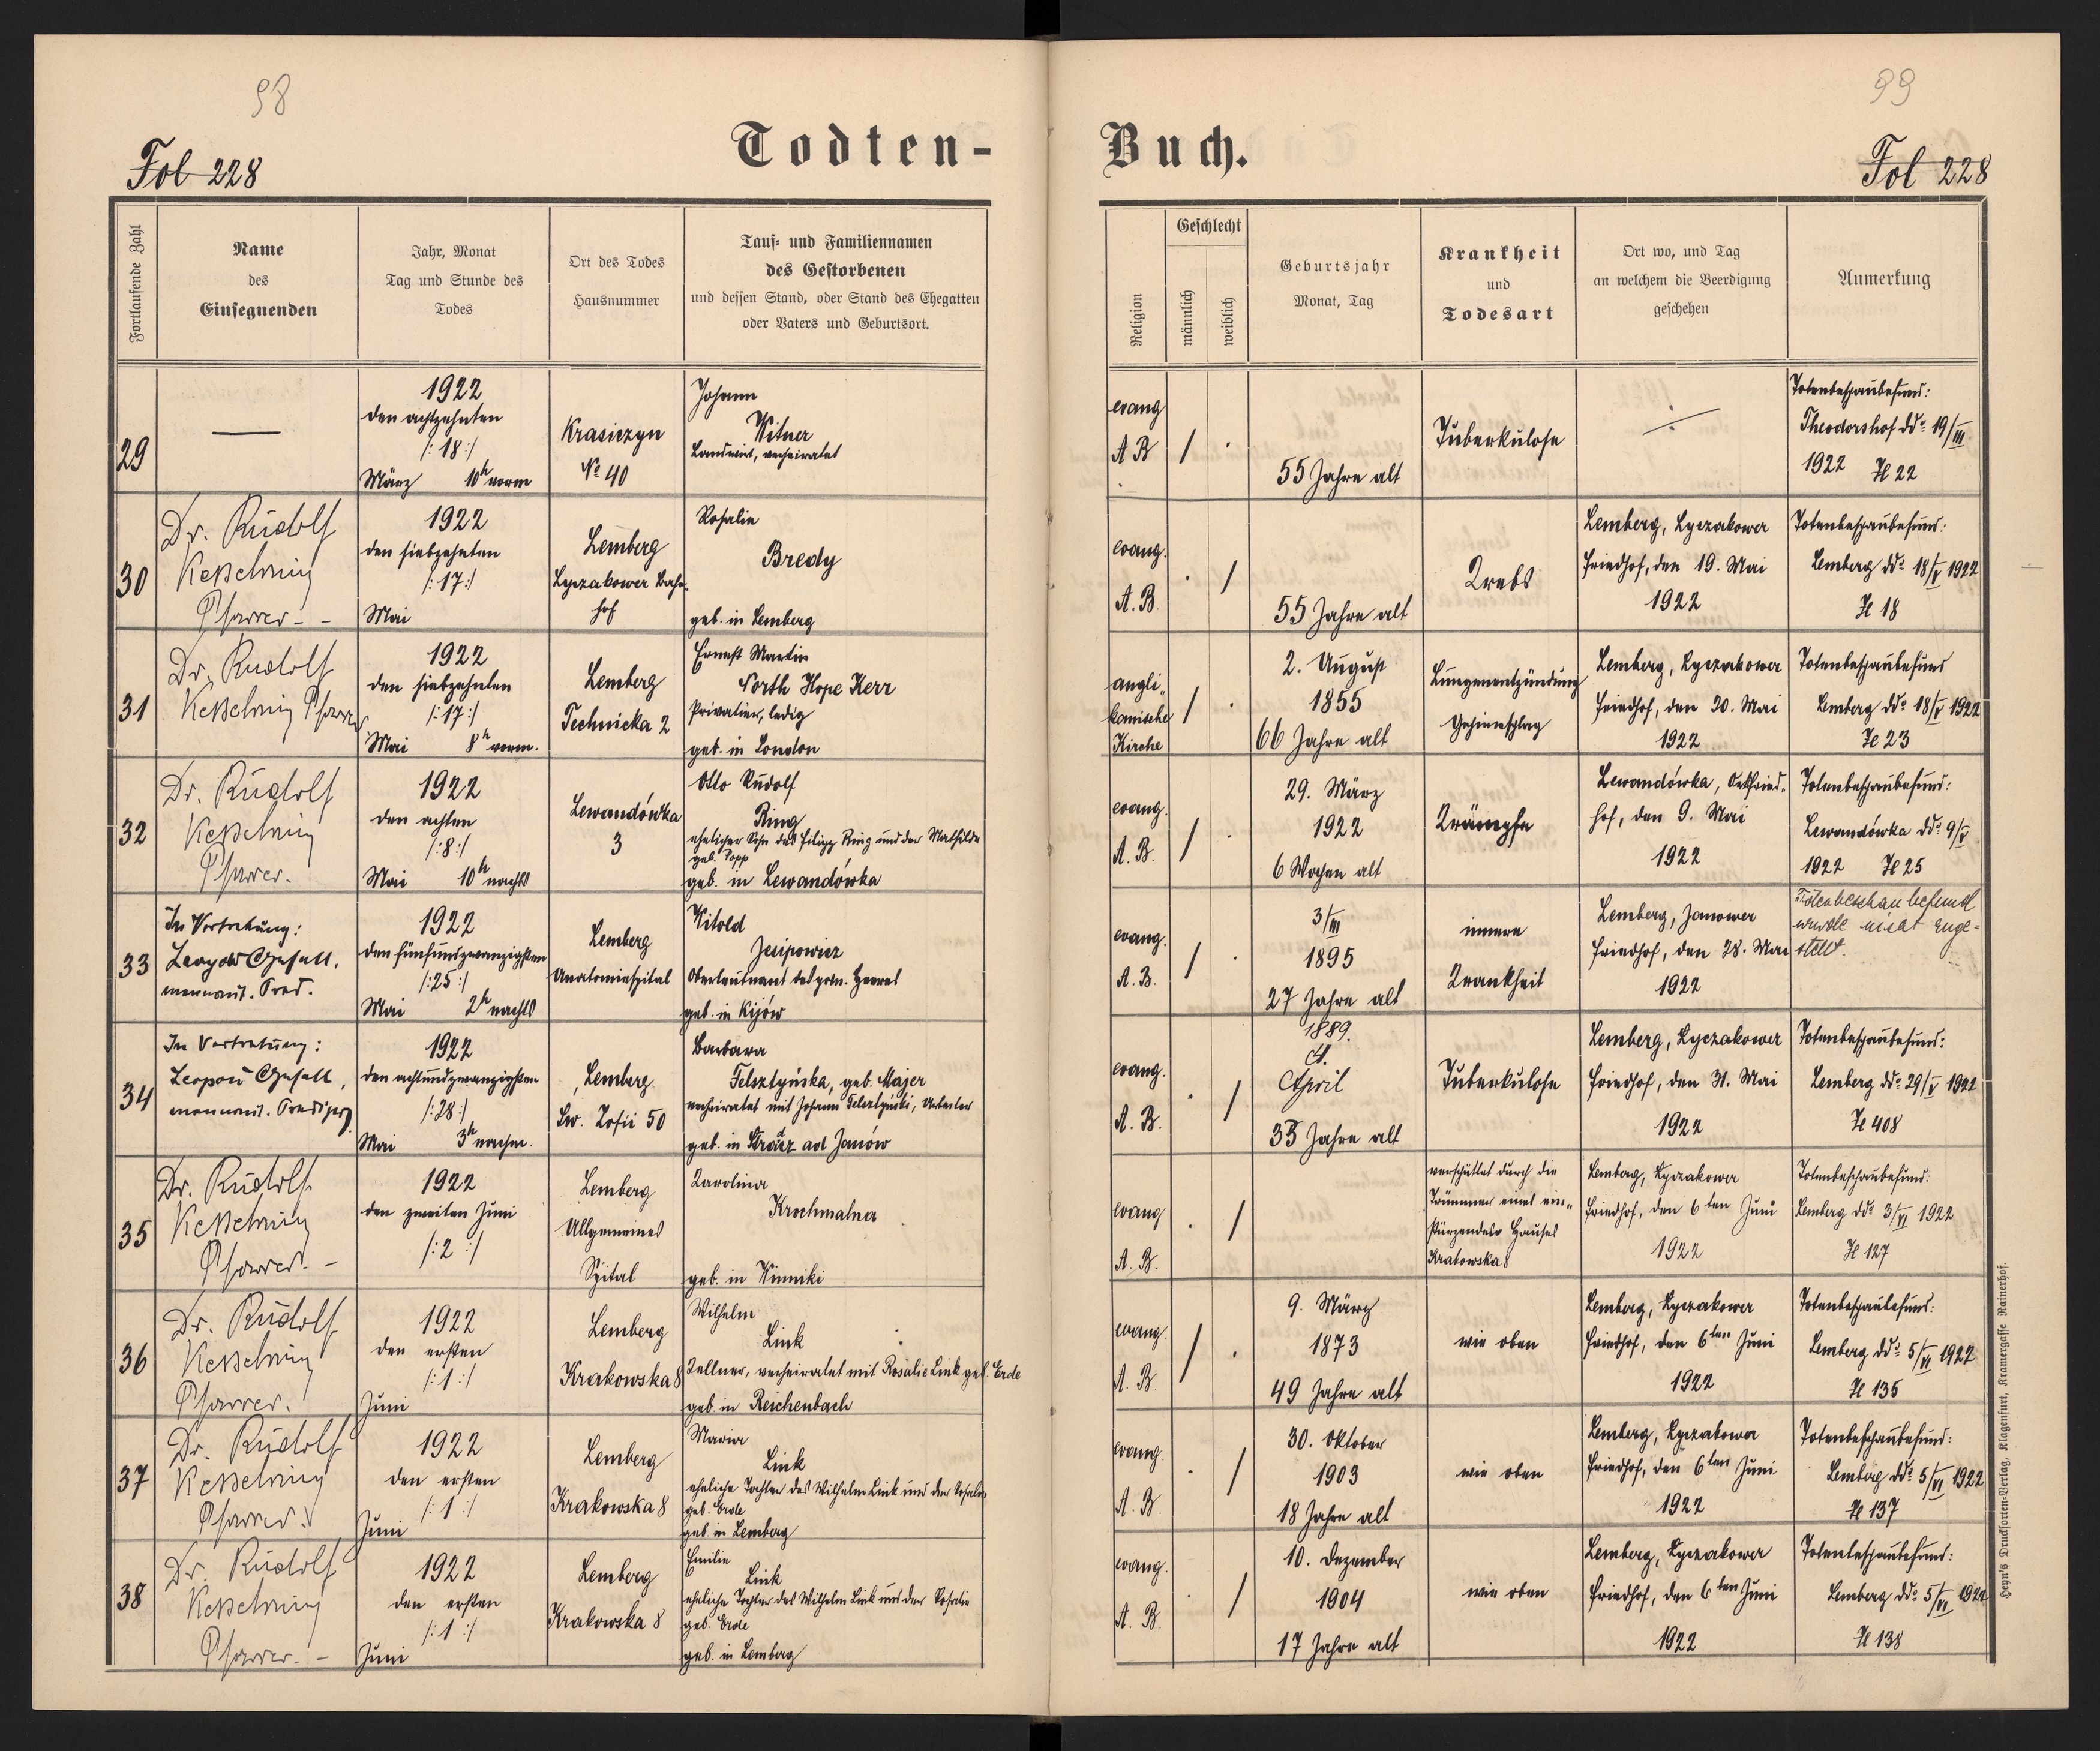 98
Fol 228
Todten-
Fortlaufende Zahl
Name
des
Einsegnenden
Jahr, Monat
Tag und Stunde des
Todes
Ort des Todes
Hausnummer
Tauf- und Familiennamen
des Gestorbenen
und dessen Stand, oder Stand des Ehegatten
oder Vaters und Geburtsort.
29
—
1922
den achtzehnten
/:18:/
März 10h vorm
Krasiczyn
No 40
Johann
Witner
Landwirt, verheiratet
30
Dr. Rudolf
Kesselring
Pfarrer
1922
den siebzehnten
/:17:/
Mai
Lemberg
Lyczakower Bahn-
hof
Rosalie
Bredy
geb. in Lemberg
31
Dr. Rudolf
Kesselring Pfarrer
1922
den siebzehnten
/:17:/
Mai 8h vorm.
Lemberg
Technicka 2
Ernest Martin
North Hope Kerr
Privatier, ledig
geb. in London
32
Dr. Rudolf
Kesselring
Pfarrer.
1922
den achten
/:8:/
Mai 10h nachts
Lewandówka
3
Otto Rudolf
Ring
ehelicher Sohn des Filipp Ring und der Mathilde
geb. Popp
geb. in Lewandówka
33
In Vertretung:
Leopold Gesell,
mennonit. Pred.
1922
den fünfundzwanzigsten
/:25:/
Mai 2h nachts
Lemberg
Anatomiespital
Witold
Jesipowicz
Oberleutnant des poln. Heeres
geb. in Kijów
34
In Vertretung:
Leopold Gesell,
mennonit. Prediger
1922
den achtundzwanzigsten
/:28:/
Mai 3h nachm.
Lemberg
Św. Zofii 50
Barbara
Felsztyńska, geb. Majer
verheiratet mit Johann Felsztyński, Arbeiter
geb. in ad Janów
35
Dr. Rudolf
Kesselring
Pfarrer.
1922
den zweiten Juni
/:2:/
Lemberg
Allgemeines
Spital
Karolina
Krochmalna
geb. in Winniki
36
Dr. Rudolf
Kesselring
Pfarrer.
1922
den ersten
/:1:/
Juni
Lemberg
Krakowska 8
Wilhelm
Link
Kellner, verheiratet mit Rosalie Link geb. Erde
geb. in Reichenbach
37
Dr. Rudolf
Kesselring
Pfarrer.
1922
den ersten
/:1:/
Juni
Lemberg
Krakowska 8
Maria
Link
eheliche Tochter des Wilhelm Link und der Rosalie
geb. Erde
geb. in Lemberg
38
Dr. Rudolf
Kesselring
Pfarrer.
1922
den ersten
/:1:/
Juni
Lemberg
Krakowska 8
Emilie
Link
eheliche Tochter des Wilhelm Link und der Rosalie
geb. Erde
geb. in Lemberg
99
Buch.
Fol 228
Religion
Geschlecht
männlich
weiblich
Geburtsjahr
Monat, Tag
Krankheit
und
Todesart
Ort wo, und Tag
an welchem die Beerdigung
geschehen
Anmerkung
evang
A B
/
.
55 Jahre alt
Tuberkulose
÷
Totenbeschaubefund:
Theodorshof ddo 19/III
1922 Zl 22
evang.
A. B.
.
/
55 Jahre alt
Krebs
Lemberg, Lyczakower
Friedhof, den 19. Mai
1922
Totenbeschaubefund:
Lemberg ddo 18/V 1922
Zl 18
angli-
kanische
Kirche
/
.
2. August
1855
66 Jahre alt
Lungenentzündung
Gehirnschlag
Lemberg, Lyczakower
Friedhof, den 20. Mai
1922
Totenbeschaubefund
Lemberg ddo 18/V 1922
Zl 23
evang.
A. B.
/
.
29. März
1922
6 Wochen alt
Krämpfe
Lewandówka, Ortsfried-
hof, den 9. Mai
1922
Totenbeschaubefund:
Lewandówka ddo 9/V
1922 Zl 25
evang.
A. B.
/
.
3/III
1895
27 Jahre alt
innere
Krankheit
Lemberg, Janower
Friedhof, den 28. Mai
1922
Totenbeschaubefund
wurde nicht zuge-
stellt.
evang.
A. B.
.
/
1889.
April
33 Jahre alt
Tuberkulose
Lemberg, Lyczakower
Friedhof, den 31. Mai
1922
Totenbeschaubefund:
Lemberg ddo 29/V 1922
Zl 408
evang
A. B.
.
/
verschüttet durch die
Trümmer eines ein-
stürzenden Hauses
Krakowska 8
Lemberg, Lyczakower
Friedhof, den 6ten Juni
1922
Totenbeschaubefund:
Lemberg ddo 3/VI 1922
Zl 127
evang.
A. B.
/
.
9. März
1873
49 Jahre alt
wie oben
Lemberg, Lyczakower
Friedhof, den 6ten Juni
1922
Totenbeschaubefund:
Lemberg ddo 5/VI 1922
Zl 135
evang.
A. B
.
/
30. Oktober
1903
18 Jahre alt
wie oben
Lemberg, Lyczakower
Friedhof, den 6ten Juni
1922
Totenbeschaubefund:
Lemberg ddo 5/VI 1922
Zl 137
evang.
A. B.
.
/
10. Dezember
1904
17 Jahre alt
wie oben
Lemberg, Lyczakower
Friedhof, den 6ten Juni
1922
Totenbeschaubefund:
Lemberg ddo 5/VI 1922
Zl 138
Hepn's Drucksorten-Verlag, Klagenfurt, Kramergasse Rainerhof.